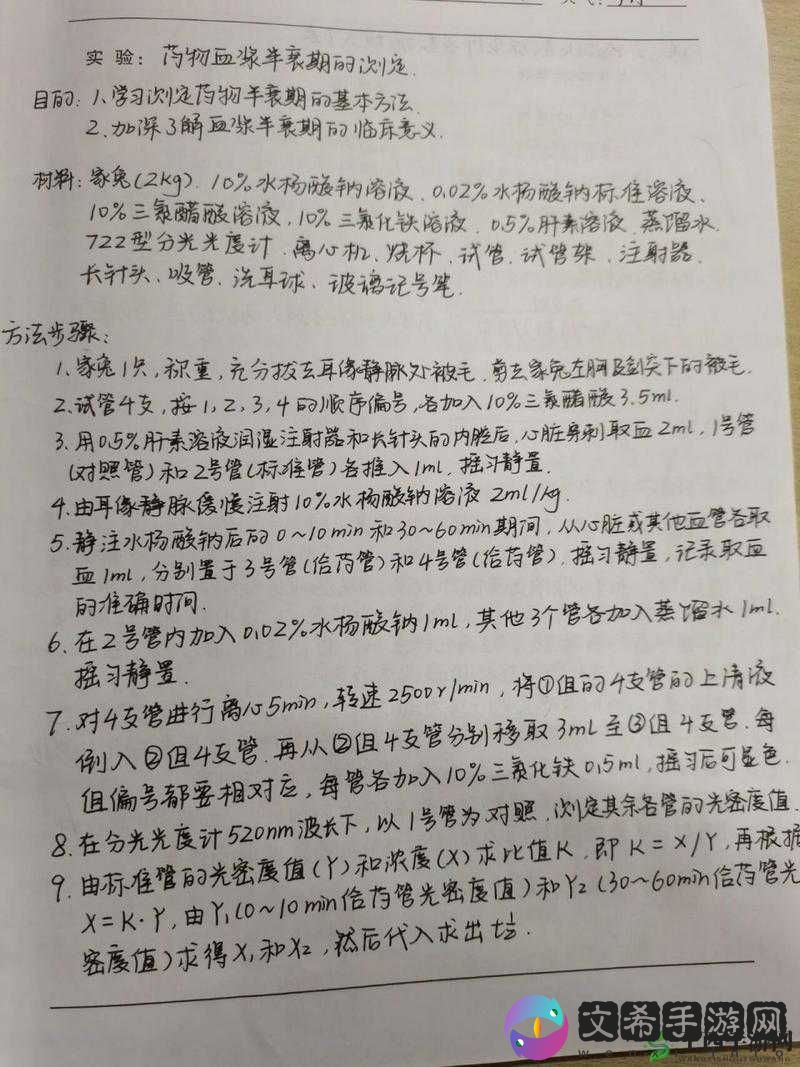 实 验: 药物血浆半衰期的测定.
目的: 1、学习测定药物半衰期的基本方法.
2、加深了解血浆半衰期的临床意义.
材料: 家兔(2kg). 10%水杨酸钠溶液. 0.02%水杨酸钠标准溶液、
10%三氯醋酸溶液. 10%三氯化铁溶液. 0.5%肝素溶液. 蒸馏水.
722型分光光度计. 离心机、烧杯、试管、试管架、注射器.
长针头、吸管、洗耳球、玻璃记号笔.
方法步骤:
1、家兔1只, 称重, 充分拔去耳缘静脉处被毛. 剪去家兔左胸及剑突下的被毛.
2、试管4支, 按1, 2, 3, 4的顺序编号, 各加入10%三氯醋酸3.5ml.
3. 用0.5%肝素溶液润湿注射器和长针头的内腔后, 心脏穿刺取血2ml, 1号管
(对照管)和2号管(标准管)各推入1ml, 摇匀静置.
4. 由耳缘静脉缓慢注射10%水杨酸钠溶液 2ml/kg.
5. 静注水杨酸钠后的0~10min和30~60min期间, 从心脏或其他血管各取
血1ml, 分别置于3号管(给药管)和4号管(给药管). 摇匀静置, 记录取血
的准确时间.
6. 在2号管内加入0.02%水杨酸钠1ml, 其他3个管各加入蒸馏水1ml.
摇匀静置.
7. 对4支管进行离心5min, 转速2500r/min, 将①组的4支管的上清液
倒入②组4支管. 再从②组4支管分别移取3mL至③组4支管. 每
组编号都要相对应, 每管各加入10%三氯化铁0.5ml, 摇匀后可显色.
8. 在分光光度计520nm波长下, 以1号管为对照, 测定其余各管的光密度值.
9. 由标准管的光密度值(Y)和浓度(X)求比值K, 即K=X/Y, 再根据
X=K·Y, 由Y₁(0~10min给药管光密度值)和Y₂(30~60min给药管光
密度值)求得X₁和X₂, 然后代入求出t½.
文希手游网